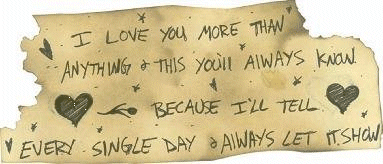 I LOVE YOU MORE THAN
ANYTHING & THIS YOU'll AlWAYS KNOW.
BECAUSE I'LL TELL
EVERY SINGLE DAY & AlWAYS LET IT SHOW!